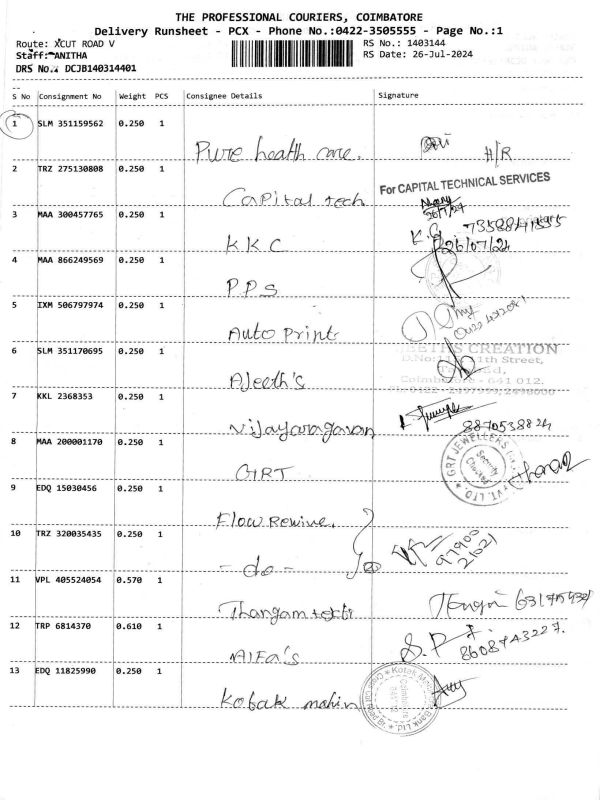 THE PROFESSIONAL COURIERS, COIMBATORE
Delivery Runsheet - PCX - Phone No.:0422-3505555 - Page No.:1
Route: XCUT ROAD V
RS No.: 1403144
Staff: ANITHA
RS Date: 26-Jul-2024
DRS No.: DCJB140314401
S No Consignment No Weight PCS Consignee Details Signature
1 SLM 351159562 0.250 1
Pure health care. H/R
2 TRZ 275130808 0.250 1
For CAPITAL TECHNICAL SERVICES
Capital tech
26/7/24
3 MAA 300457765 0.250 1
KKC
26/07/24
4 MAA 866249569 0.250 1
PPS
5 IXM 506797974 0.250 1
Auto Print
6 SLM 351170695 0.250 1
CREATION
11th Street,
Coimbatore - 641 012.
Ajeeth's
7 KKL 2368353 0.250 1
Vijayaragavan
8870538824
8 MAA 200001170 0.250 1
GRT
GRT JEWELLERS
Security
PVT. LTD.
9 EDQ 15030456 0.250 1
Flow Rewine.
10 TRZ 320035435 0.250 1
- do -
97900
21021
11 VPL 405524054 0.570 1
Thangam
12 TRP 6814370 0.610 1
Alfa's
8608743227.
13 EDQ 11825990 0.250 1
Kotak mahin
Kotak Mahindra Bank Ltd.
Coimbatore